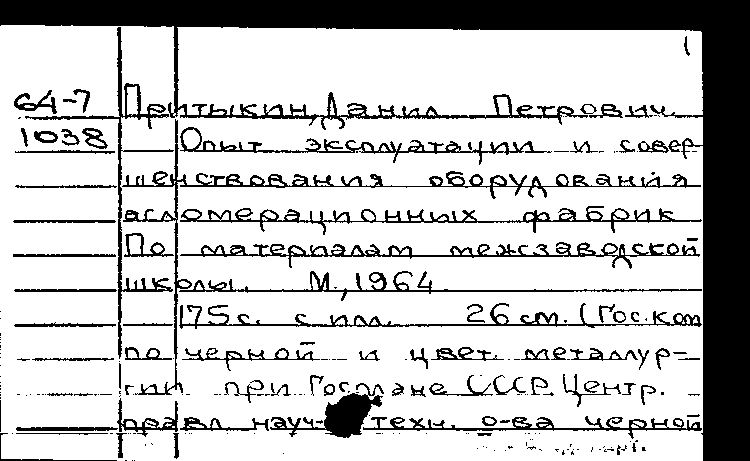 1
64-7 Притыкин, Данил Петрович.
1038 Опыт эксплуатации и совер-
шенствования оборудования
агломерационных фабрик
По материалам межзаводской
школы. М., 1964
175 с. с илл. 26 см. (Гос. ком
по черной и цвет. металлур-
гии при Госплане СССР. Центр.
правл науч- техн. о-ва черной